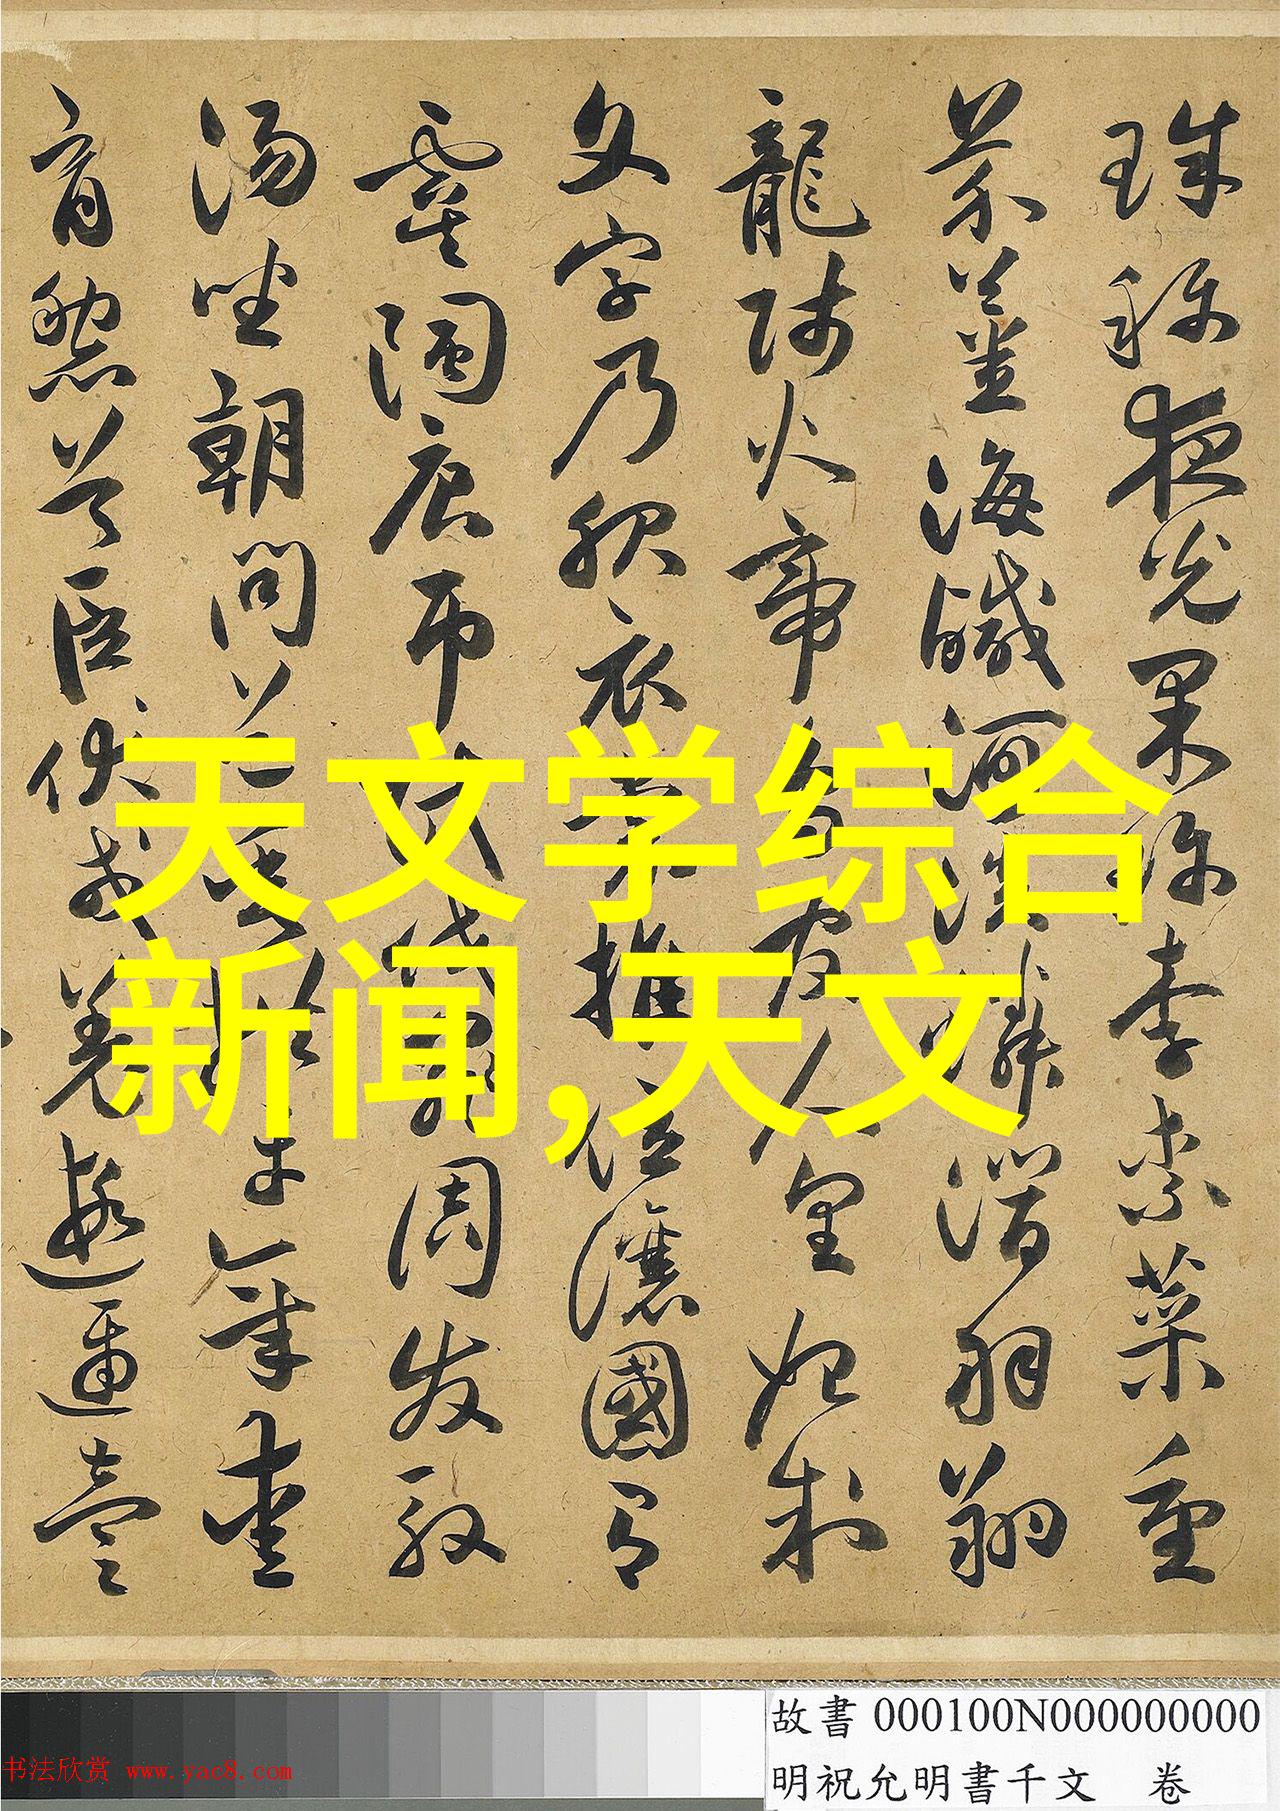 珠称夜光果珍李柰菜重
芥薑海鹹河淡鱗潛羽翔
龍師火帝鳥官人皇始制
文字乃服衣裳推位讓國有
虞陶唐弔民伐罪周发殷
湯坐朝問道垂拱平章愛
育黎首臣伏戎羌遐邇壹
天文学综合
新闻,天文
故書 000100N000000000
明祝允明書千文 卷
书法欣赏 www.yac8.com